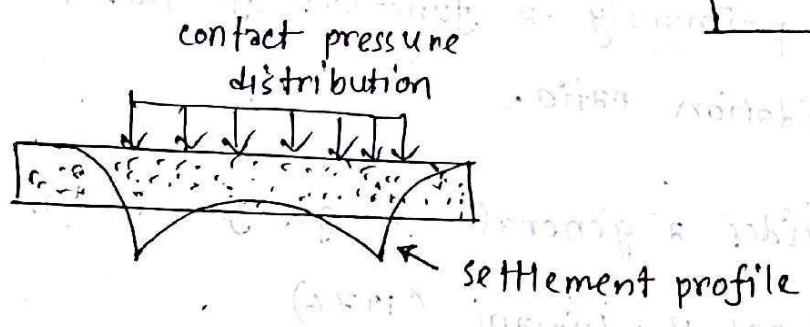 contact pressure
distribution
settlement profile